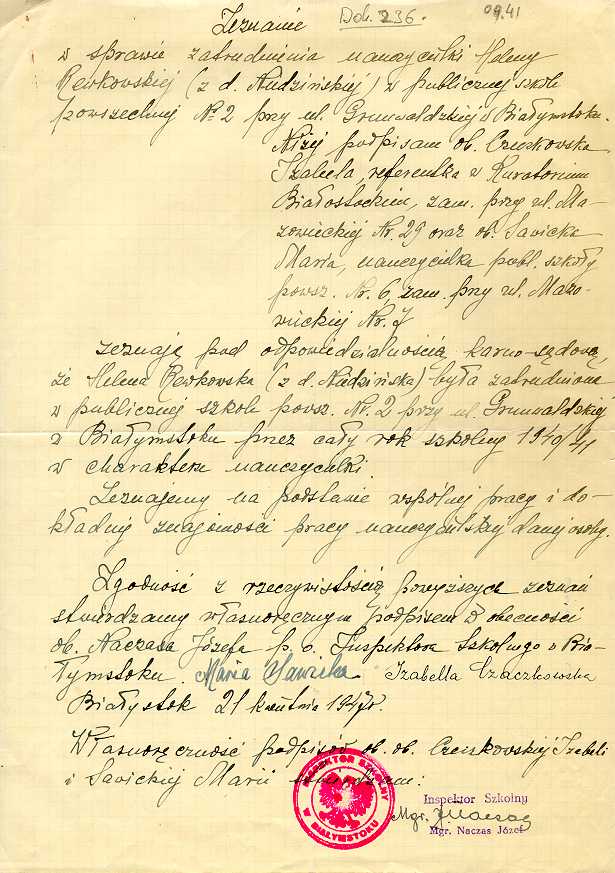 Zeznanie Dok. 236. 09.41
w sprawie zatrudnienia nauczycielki Heleny
Rewkowskiej (z d. Nudzińskiej) w publicznej szkole
powszechnej № 2 przy ul. Grunwaldzkiej w Białymstoku.
Niżej podpisani ob. Czeczkowska
Izabela, referentka w Kuratorium
Białostockim, zam. przy ul. Ma-
zowieckiej Nr. 29 oraz ob. Savicka
Maria, nauczycielka publ. szkoły
powsz. Nr. 6, zam. przy ul. Mazo-
wieckiej Nr. 7
zeznają pod odpowiedzialnością karno-sądową
że Helena Rewkowska (z d. Nudzińska) była zatrudniona
w publicznej szkole powsz. Nr. 2 przy ul. Grunwaldzkiej
w Białymstoku przez cały rok szkolny 1940/41
w charakterze nauczycielki.
Zeznajemy na podstawie wspólnej pracy i do-
kładnej znajomości pracy nauczycielskiej danej osoby.
Zgodność z rzeczywistością powyższych zeznań
stwierdzamy własnoręcznym podpisem w obecności
ob. Naczasa Józefa p. o. Inspektora Szkolnego w Bia-
łymstoku. Maria Sawicka Izabella Czaczkowska
Białystok 21 kwietnia 1947r.
Własnoręczność podpisów ob. ob. Izabeli
i Savickiej Marii
INSPEKTOR SZKOLNY
W BIAŁYMSTOKU
Inspektor Szkolny
Mgr. JNaczas
Mgr. Naczas Józef